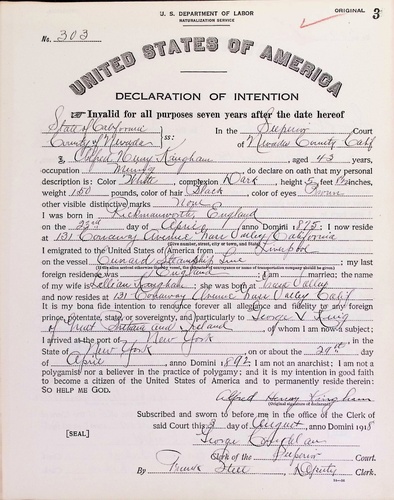 U. S. DEPARTMENT OF LABOR
NATURALIZATION SERVICE
ORIGINAL 3
No. 303
UNITED STATES OF AMERICA
DECLARATION OF INTENTION
☞ Invalid for all purposes seven years after the date hereof
State of California, In the Superior Court
County of Nevada ss: of Nevada County Calif
I, Alfred Henry Kingham, aged 43 years,
occupation, do declare on oath that my personal
description is: Color White, complexion Dark, height 5 feet inches,
weight 150 pounds, color of hair Black, color of eyes Brown
other visible distinctive marks None
I was born in Rickmansworth, England
on the 22nd day of April, anno Domini 1875; I now reside
at 131 Conaway Avenue Grass Valley, California
(Give number, street, city or town, and State.)
I emigrated to the United States of America from Liverpool
on the vessel Cunard Steamship Line; my last
(If the alien arrived otherwise than by vessel, the character of conveyance or name of transportation company should be given.)
foreign residence was England; I am married; the name
of my wife is Lillian Kingham; she was born at Grass Valley
and now resides at 131 Conaway Avenue Grass Valley Calif
It is my bona fide intention to renounce forever all allegiance and fidelity to any foreign
prince, potentate, state, or sovereignty, and particularly to George V King
of Great Britain and Ireland, of whom I am now a subject;
I arrived at the port of New York, in the
State of New York, on or about the 29th day
of April, anno Domini 1892; I am not an anarchist; I am not a
polygamist nor a believer in the practice of polygamy; and it is my intention in good faith
to become a citizen of the United States of America and to permanently reside therein:
SO HELP ME GOD.
Alfred Henry Kingham
(Original signature of declarant.)
Subscribed and sworn to before me in the office of the Clerk of
said Court this 3 day of August, anno Domini 1918
[SEAL]
George
Clerk of the Superior Court.
By Frank Steel, Deputy Clerk.